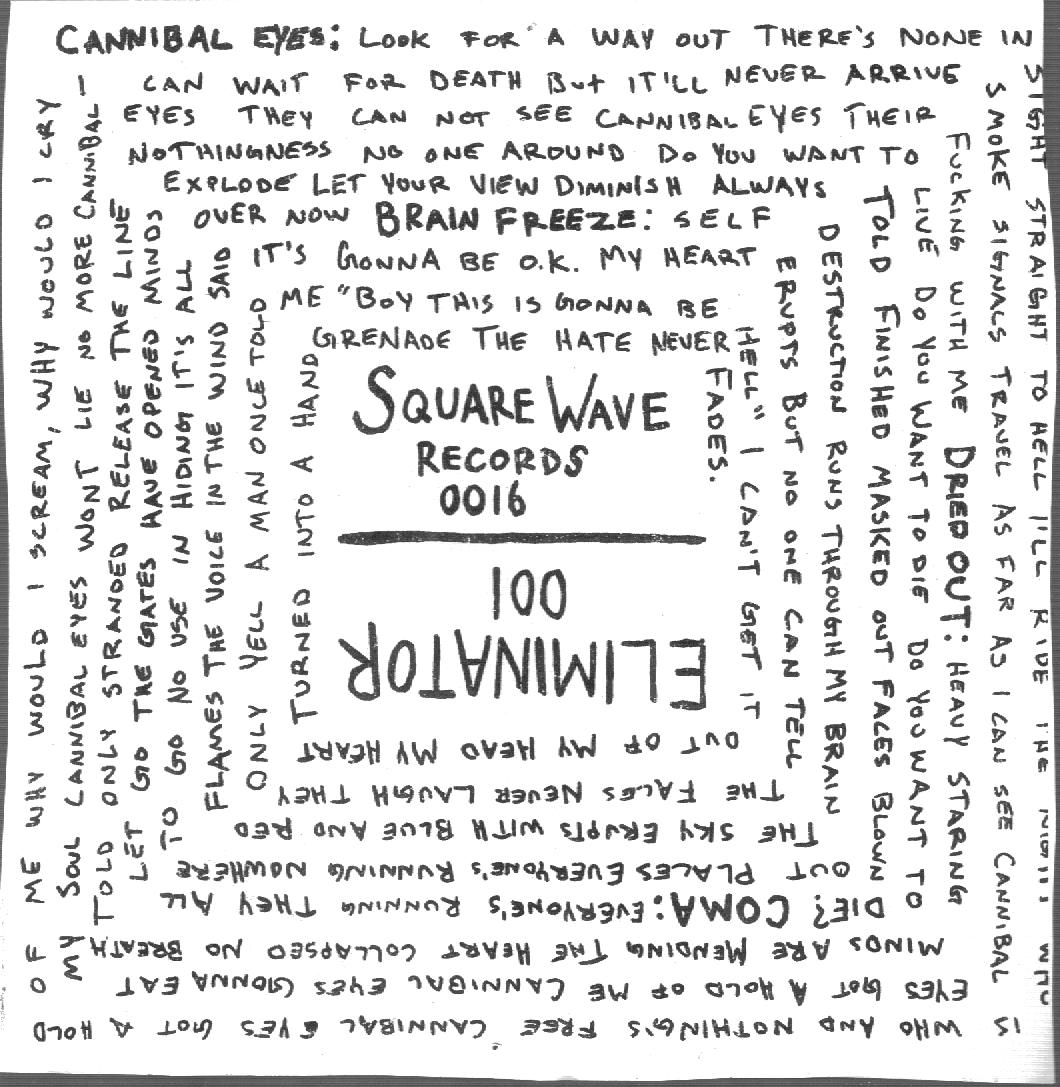 CANNIBAL EYES: LOOK FOR A WAY OUT THERE'S NONE IN
SIGHT STRAIGHT TO HELL I'LL RIDE THE NIGHT
IS WHO AND NOTHING'S FREE CANNIBAL EYES GOT A HOLD
OF ME WHY WOULD I SCREAM, WHY WOULD I CRY
I CAN WAIT FOR DEATH BUT IT'LL NEVER ARRIVE
SMOKE SIGNALS TRAVEL AS FAR AS I CAN SEE CANNIBAL
EYES GOT A HOLD OF ME CANNIBAL EYES GONNA EAT
MY SOUL CANNIBAL EYES WONT LIE NO MORE CANNIBAL -
EYES THEY CAN NOT SEE CANNIBAL EYES THEIR
FUCKING WITH ME DRIED OUT: HEAVY STARING
MINDS ARE MENDING THE HEART COLLAPSED NO BREATH
TOLD ONLY STRANDED RELEASE THE LINE
NOTHINGNESS NO ONE AROUND DO YOU WANT TO
LIVE DO YOU WANT TO DIE DO YOU WANT TO
DIE? COMA: EVERYONE'S RUNNING THEY ALL
LET GO THE GATES HAVE OPENED MINDS
EXPLODE LET YOUR VIEW DIMINISH ALWAYS
TOLD FINISHED MASKED OUT FACES BLOWN
OUT PLACES EVERYONE'S RUNNING NOWHERE
TO GO NO USE IN HIDING IT'S ALL
OVER NOW BRAIN FREEZE: SELF
DESTRUCTION RUNS THROUGH MY BRAIN
THE SKY ERUPTS WITH BLUE AND RED
FLAMES THE VOICE IN THE WIND SAID
IT'S GONNA BE O.K. MY HEART
ERUPTS BUT NO ONE CAN TELL
THE FACES NEVER LAUGH THEY
ONLY YELL A MAN ONCE TOLD
ME "BOY THIS IS GONNA BE
HELL" I CAN'T GET IT
OUT OF MY HEAD MY HEART
TURNED INTO A HAND
GRENADE THE HATE NEVER
FADES.
SQUARE WAVE
RECORDS
0016
ELIMINATOR
001